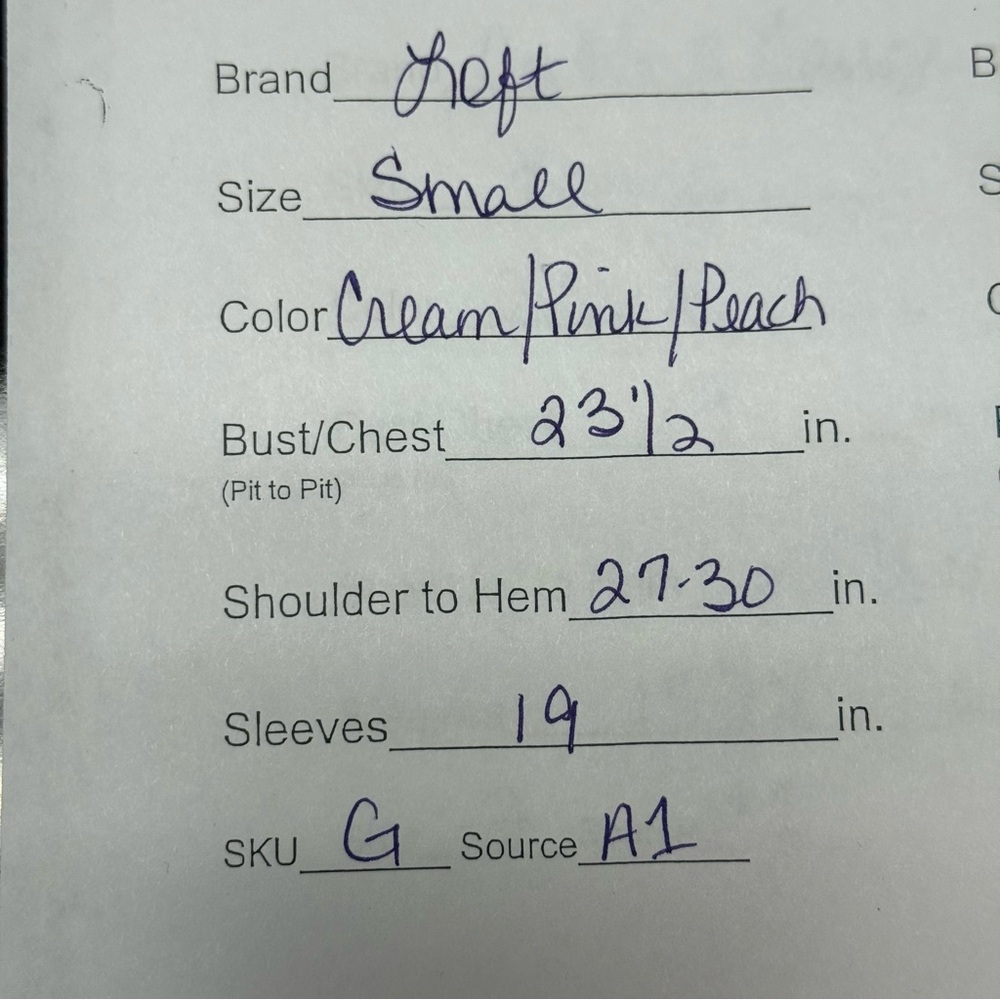 Brand Loft
Size Small
Color Cream/Pink/Peach
Bust/Chest 23 1/2 in.
(Pit to Pit)
Shoulder to Hem 27-30 in.
Sleeves 19 in.
SKU G Source A1